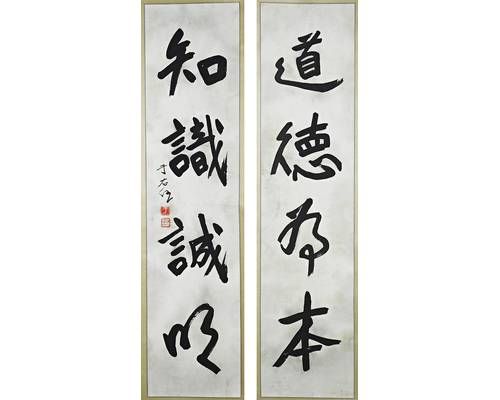 道德為本
知識誠明
于右任